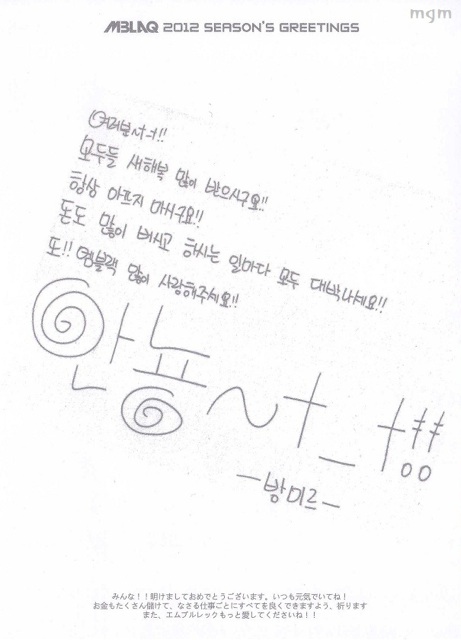 MBLAQ 2012 SEASON'S GREETINGS
mgm
여러분~!!
모두들 새해복 많이 받으시구요!!
항상 아프지 마시구요!!
돈도 많이 버시고 하시는 일마다 모두 대박나세요!!
또!! 엠블랙 많이 사랑해주세요!!
안뇽~
-방미르-
みんな！！明けましておめでとうございます。いつも元気でいてね！
お金もたくさん儲けて、なさる仕事ごとにすべてを良くできますよう、祈ります
また、エムブルレックもっと愛してくださいね！！